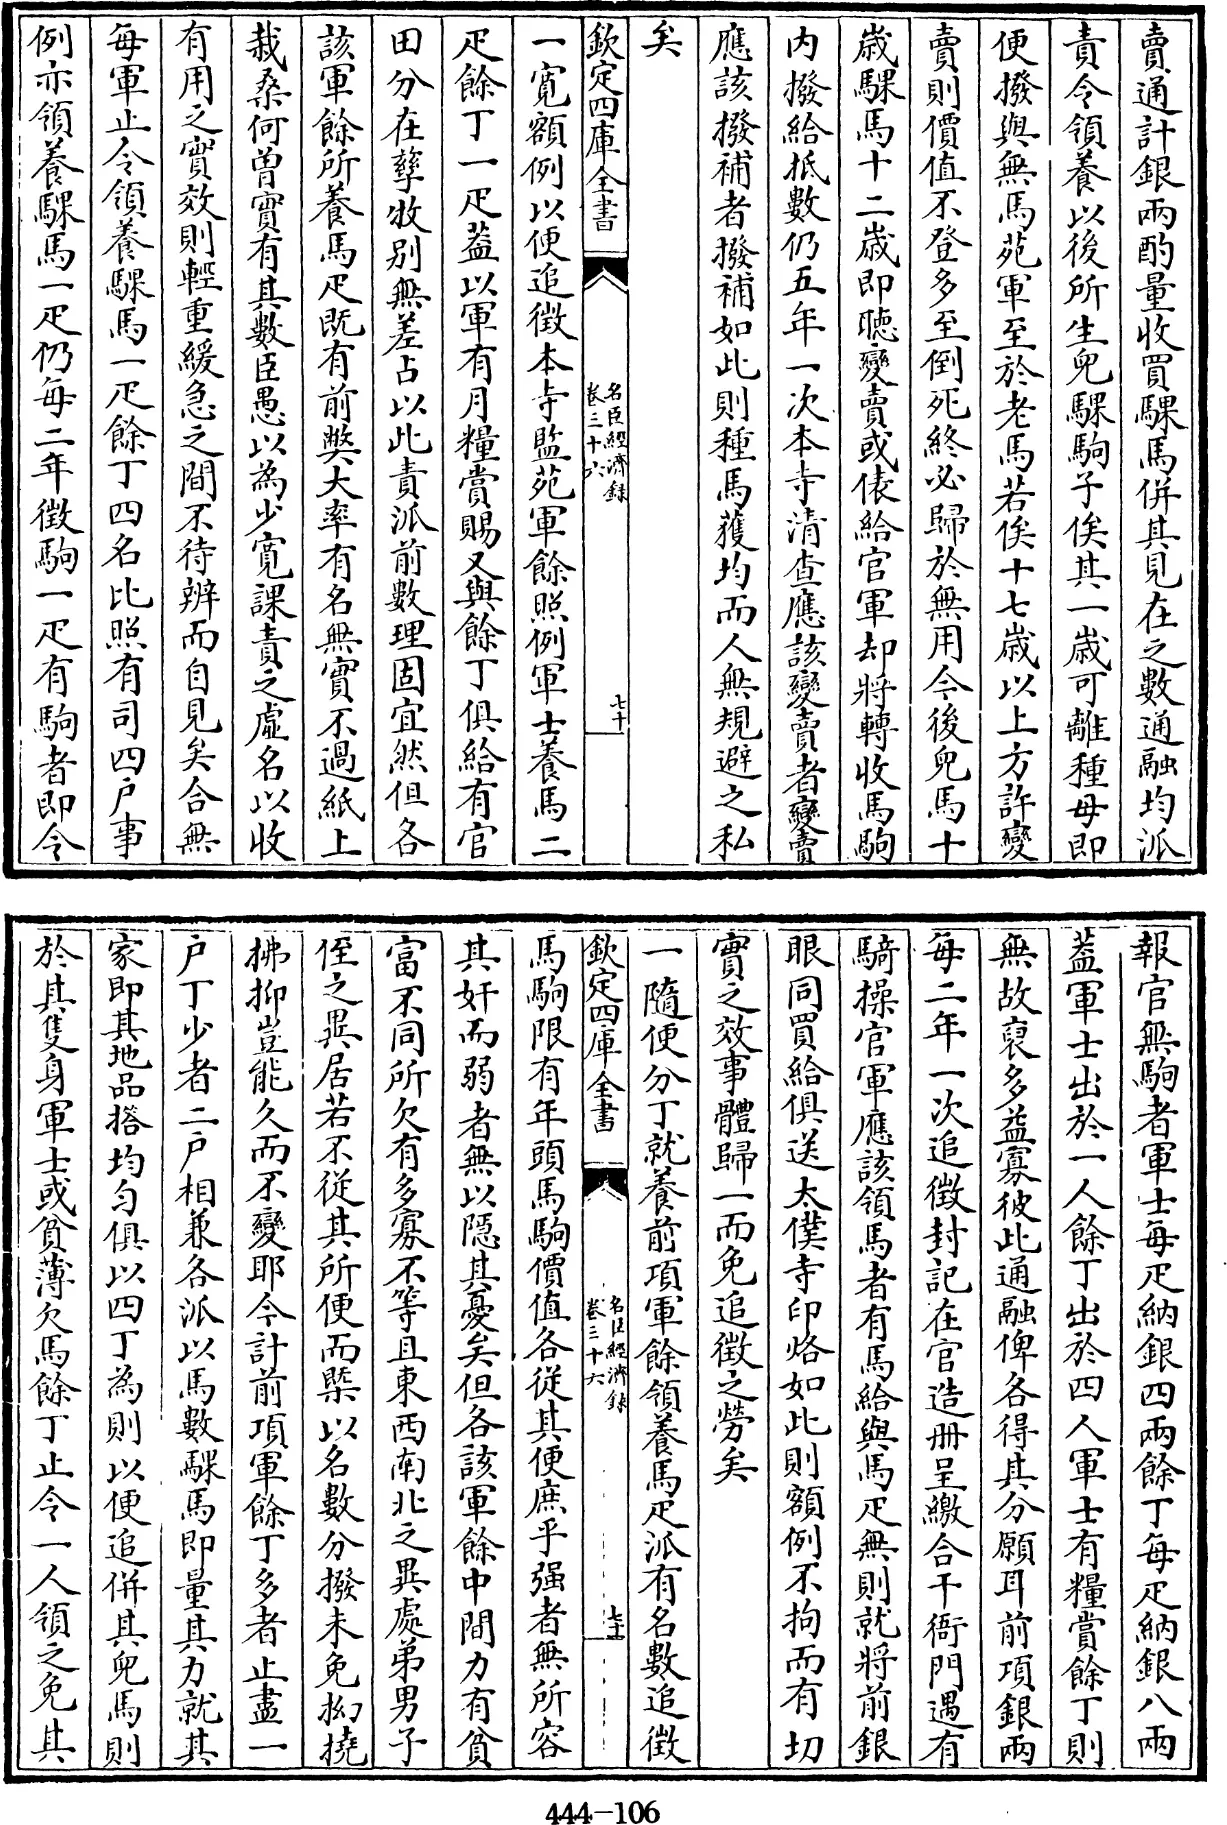 賣通計銀兩酌量收買騍馬併其見在之數通融均派
責令領養以後所生兒騍駒子俟其一歲可離種母即
便撥與無馬苑軍至於老馬若俟十七歲以上方許變
賣則價值不登多至倒死終必歸於無用今後兒馬十
歲騍馬十二歲即聽變賣或俵給官軍却將轉收馬駒
内撥給抵數仍五年一次本寺清查應該變賣者變賣
應該撥補者撥補如此則種馬獲均而人無規避之私
矣
欽定四庫全書
名臣經濟録
卷三十六
七十
一寛額例以便追徵本寺監苑軍餘照例軍士養馬二
疋餘丁一疋葢以軍有月糧賞賜又與餘丁俱給有官
田分在孳牧别無差占以此責派前數理固宜然但各
該軍餘所養馬疋既有前弊大率有名無實不過紙上
栽桑何曾實有其數臣愚以為少寛課責之虛名以收
有用之實效則輕重緩急之間不待辨而自見矣合無
每軍止令領養騍馬一疋餘丁四名比照有司四户事
例亦領養騍馬一疋仍每二年徵駒一疋有駒者即令
報官無駒者軍士每疋納銀四兩餘丁每疋納銀八兩
葢軍士出於一人餘丁出於四人軍士有糧賞餘丁則
無故裒多益寡彼此通融俾各得其分願耳前項銀兩
每二年一次追徵封記在官造冊呈繳合干衙門遇有
騎操官軍應該領馬者有馬給與馬疋無則就將前銀
眼同買給俱送太僕寺印烙如此則額例不拘而有切
實之效事體歸一而免追徵之勞矣
一隨便分丁就養前項軍餘領養馬疋派有名數追徵
欽定四庫全書
名臣經濟録
卷三十六
七十一
馬駒限有年頭馬駒價值各從其便庶乎强者無所容
其奸而弱者無以隱其憂矣但各該軍餘中間力有貧
富不同所欠有多寡不等且東西南北之異處弟男子
侄之異居若不從其所便而槩以名數分撥未免拗撓
拂抑豈能久而不變耶今計前項軍餘丁多者止盡一
户丁少者二户相兼各派以馬數騍馬即量其力就其
家即其地品搭均匀俱以四丁為則以便追併其兒馬則
於其隻身軍士或貧薄欠馬餘丁止令一人領之免其
444-106